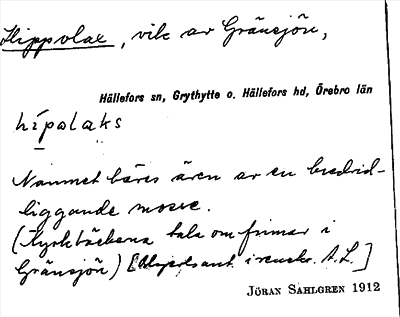 Hippolax, vik av Gränsjön,
Hällefors sn, Grythytte o. Hällefors hd, Örebro län
hípalaks
Namnet bäres även av en bredvid-
liggande mosse.
(Kyrkböckerna tala om finnar i
Gränsjön) [ i renskr. A.L.]
JÖRAN SAHLGREN 1912